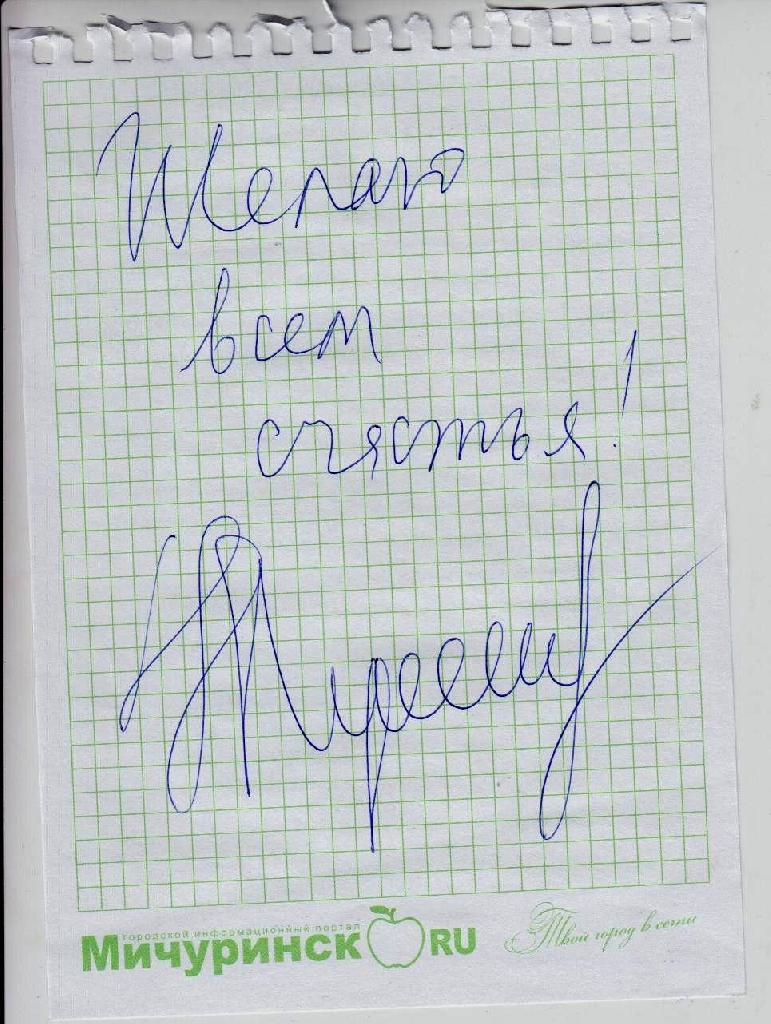 Желаю
всем
счастья!
городской информационный портал
Мичуринск RU
Твой город в сети